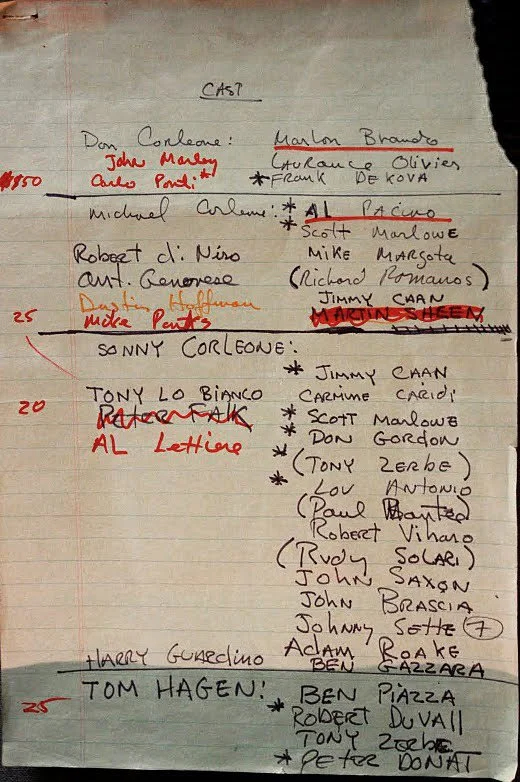 CAST
Don Corleone: Marlon Brando
John Marley Laurance Olivier
Carlo Ponti* * FRANK DE KOVA
$150
Michael Corleone: * AL PACINO
* Scott Marlowe
Robert di Niro MIKE MARGOTA
Ant. Genovese (Richard Romanos)
Dustin Hoffman JIMMY CAAN
25 Mike Parks MARTIN SHEEN
SONNY CORLEONE:
* JIMMY CAAN
TONY LO BIANCO CARMINE CARIDI
20 Peter FALK * Scott MARLOWE
AL Lettiere * DON GORDON
* (TONY ZERBE)
* LOU ANTONIO
(Paul
Robert Viharo
(RUDY SOLARI)
JOHN SAXON
JOHN BRASCIA
Johnny Sette 7
ADAM ROAKE
HARRY GUARDINO BEN GAZZARA
TOM HAGEN: BEN PIAZZA
25 * ROBERT DUVAll
TONY ZERBE
* PETER DONAT